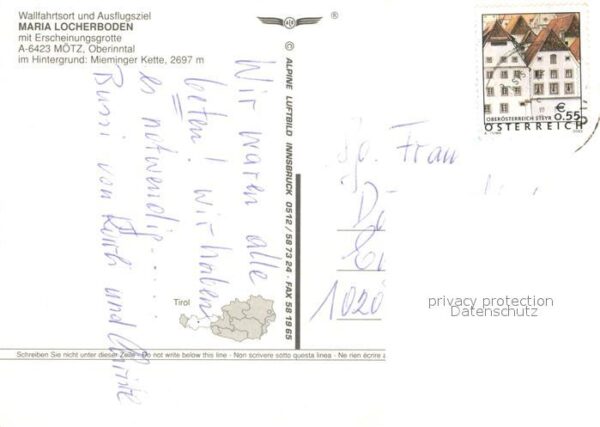 Wallfahrtsort und Ausflugsziel
MARIA LOCHERBODEN
mit Erscheinungsgrotte
A-6423 MÖTZ, Oberinntal
im Hintergrund: Mieminger Kette, 2697 m
®
© ALPINE LUFTBILD INNSBRUCK 0512 / 58 73 24 · FAX 58 19 65
Wir waren alle
beten! Wir haben
es notwendig.....
Bussi von und
€ 0.55
OBERÖSTERREICH STEYR
ÖSTERREICH
Frau
1020
Tirol
privacy protection
Datenschutz
Schreiben Sie nicht unter dieser Zeile - Do not write below this line - Non scrivere sotto questa linea - Ne rien écrire